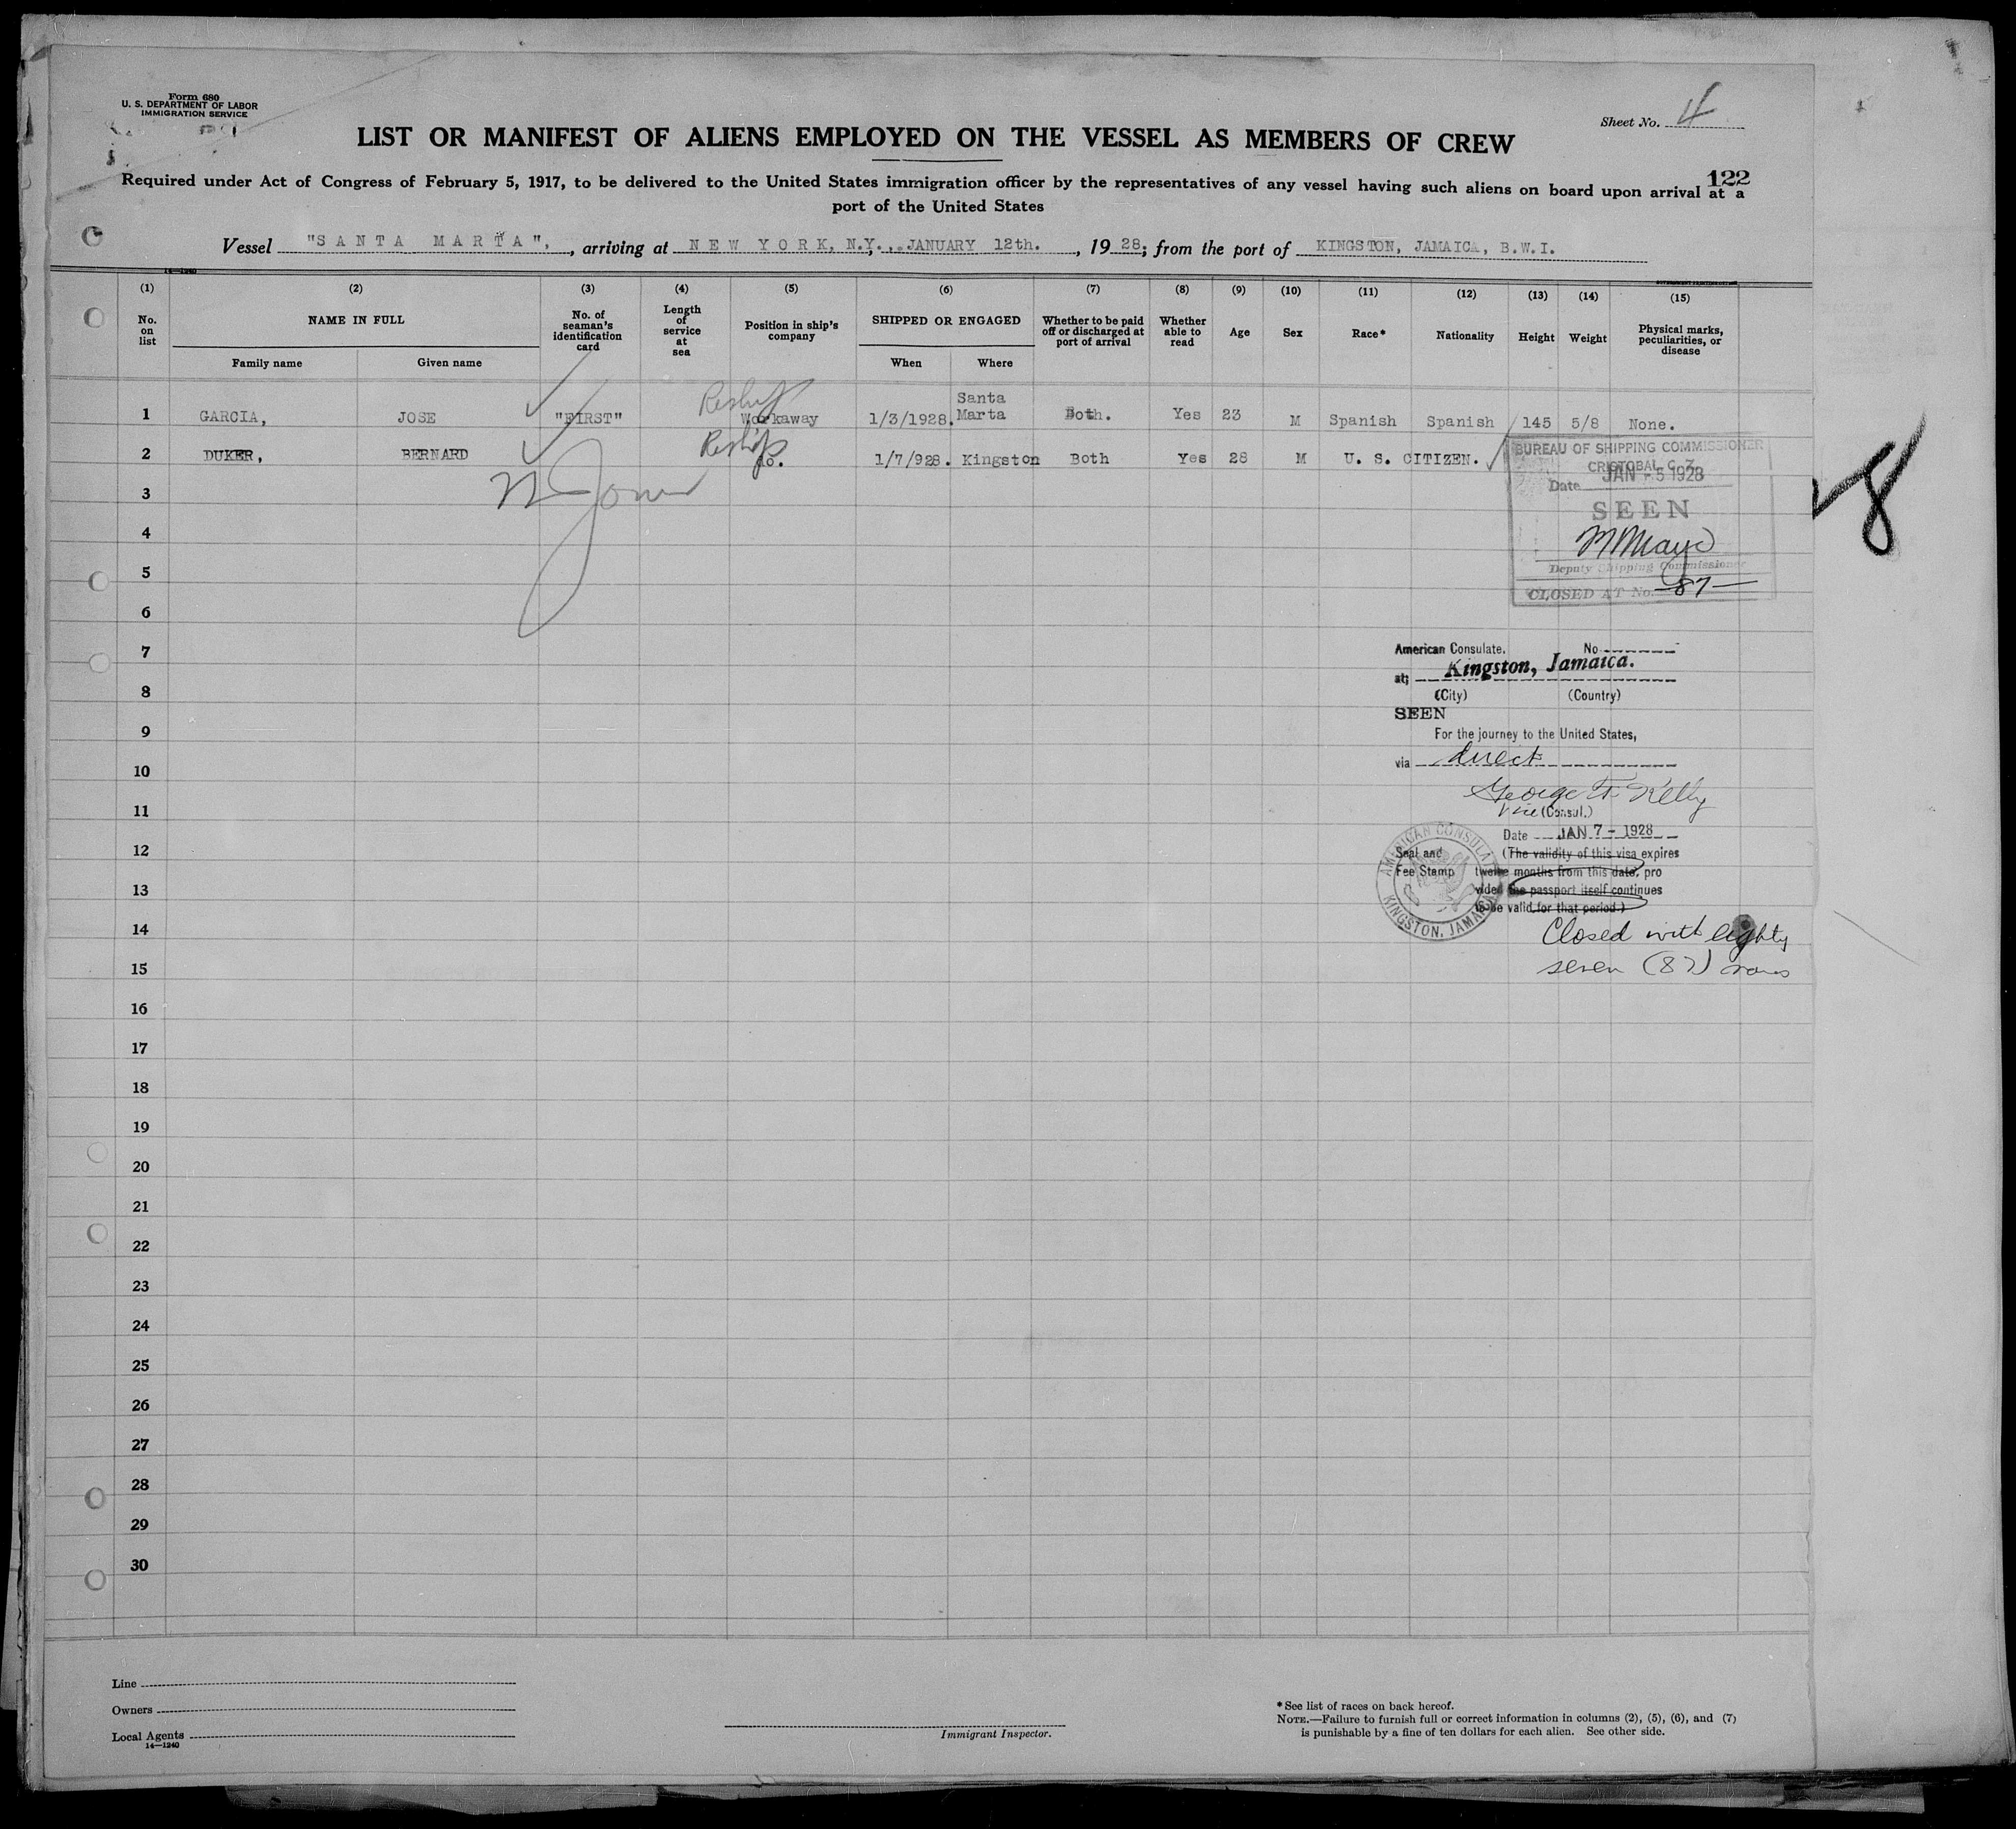 Form 680
U. S. DEPARTMENT OF LABOR
IMMIGRATION SERVICE
Sheet No. 4
LIST OR MANIFEST OF ALIENS EMPLOYED ON THE VESSEL AS MEMBERS OF CREW
122
Required under Act of Congress of February 5, 1917, to be delivered to the United States immigration officer by the representatives of any vessel having such aliens on board upon arrival at a
port of the United States
Vessel "SANTA MARTA", , arriving at NEW YORK, N.Y., JANUARY 12th. , 1928; from the port of KINGSTON, JAMAICA, B.W.I.
14—1240
(1) (2) (3) (4) (5) (6) (7) (8) (9) (10) (11) (12) (13) (14) (15)
No. on list NAME IN FULL No. of seaman's identification card Length of service at sea Position in ship's company SHIPPED OR ENGAGED Whether to be paid off or discharged at port of arrival Whether able to read Age Sex Race* Nationality Height Weight Physical marks, peculiarities, or disease
Family name Given name When Where
1 GARCIA, JOSE "FIRST" Reship Workaway 1/3/1928. Santa Marta Both. Yes 23 M Spanish Spanish 145 5/8 None.
2 DUKER, BERNARD Reship do. 1/7/928. Kingston Both Yes 28 M U. S. CITIZEN.
BUREAU OF SHIPPING COMMISSIONER
CRISTOBAL C. Z.
Date JAN - 5 1928
SEEN
Deputy Shipping Commissioner
CLOSED AT No. 87
8
3
4
5
6
7
8
9
10
11
12
13
14
15
16
17
18
19
20
21
22
23
24
25
26
27
28
29
30
American Consulate. No
at; Kingston, Jamaica.
(City) (Country)
SEEN
For the journey to the United States,
via direct
George F. Kelly
Vice (Consul.)
Date JAN 7 - 1928
Seal and
Fee Stamp
(The validity of this visa expires
twelve months from this date, pro
vided the passport itself continues
to be valid for that period.)
AMERICAN CONSULATE
KINGSTON, JAMAICA
Closed with eighty
seven (87)
Line
Owners
Local Agents
14—1240
Immigrant Inspector.
*See list of races on back hereof.
NOTE.—Failure to furnish full or correct information in columns (2), (5), (6), and (7)
is punishable by a fine of ten dollars for each alien. See other side.